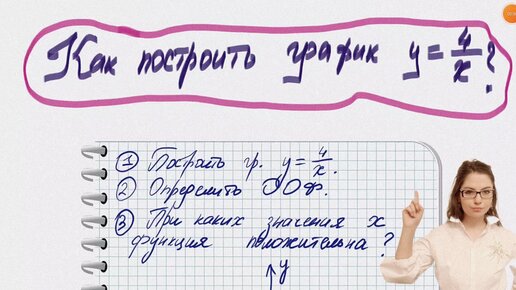 Как построить график y = 4/x?
① Построить гр. y = 4/x.
② Определить ООф.
③ При каких значения x
функция положительна?
y